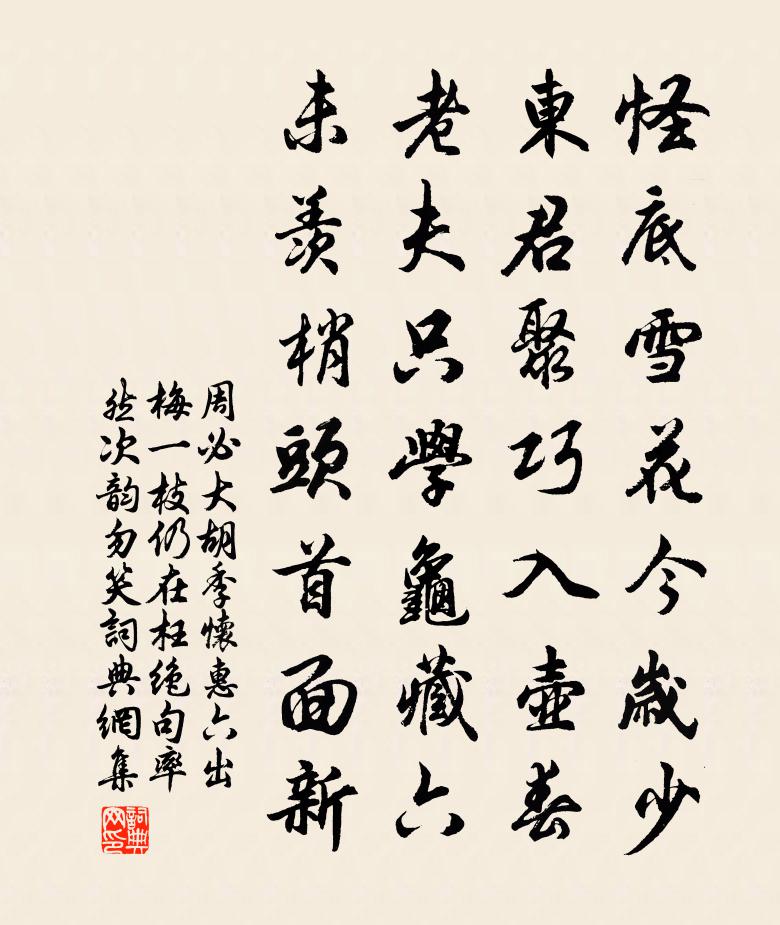 怪底雪花今歲少
東君聚巧入壺春
老夫只學龜藏六
未羨梢頭首面新
周必大胡季懷惠六出
梅一枝仍在枉絶句率
然次韵勿笑詞典網集
詞典
网印